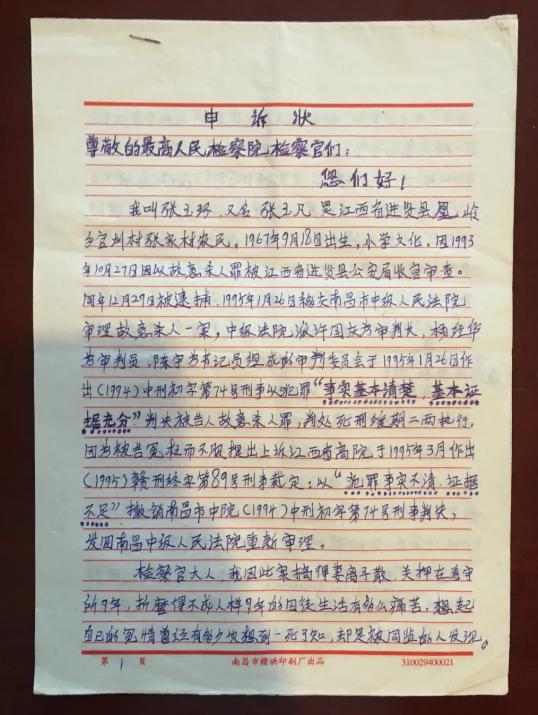 申诉状
尊敬的最高人民检察院,检察官们:
您们好!
我叫张玉环,又名张玉凡,是江西省进贤县凰岭
乡官圳村张家村农民,1967年9月18日出生,小学文化,因1993
年10月27日因以故意杀人罪被江西省进贤县公安局收容审查。
同年12月29日被逮捕,1995年1月26日移交南昌市中级人民法院
审理故意杀人一案,中级法院派许国庆为审判长,杨经华
为审判员,陈宇为书记员组成的审判委员会于1995年1月26日作
出(1994)中刑初字第74号刑事以犯罪“事实基本清楚,基本证
据充分”判决被告人故意杀人罪,判处死刑缓期二两执行,
因为被告冤枉而不服提出上诉江西省高院于1995年3月作出
(1995)赣刑终字第89号刑事裁定:以“犯罪事实不清,证据
不足”撤销南昌市中院(1994)中刑初字第74号刑事判决,
发回南昌中级人民法院重新审理。
检察官大人,我因此案搞得妻离子散,关押在看守
所9年,折磨得不成人样9年的囚徒生活有多么痛苦,想起
自己的冤情曾经有多少次想到一死了知,却是被同监的人发现。
第1页
南昌市赣洪印刷厂出品
310029400021